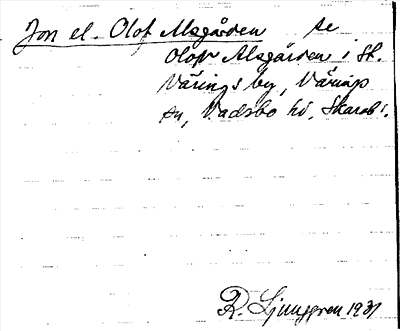 Jon el. Olof Alsgården se
Olofr Alsgården i St.
Värings by, Värings
sn, Vadsbo hd, Skarab.
R. Ljunggren 1931